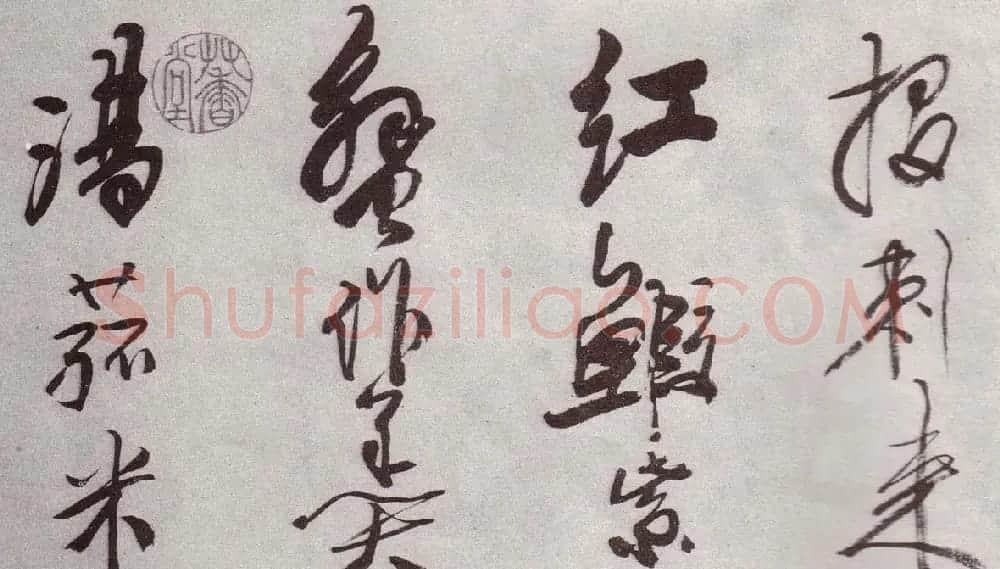 投刺来
紅鰕紫
蟹作羹
湯菰米
Shufaziliao.COM